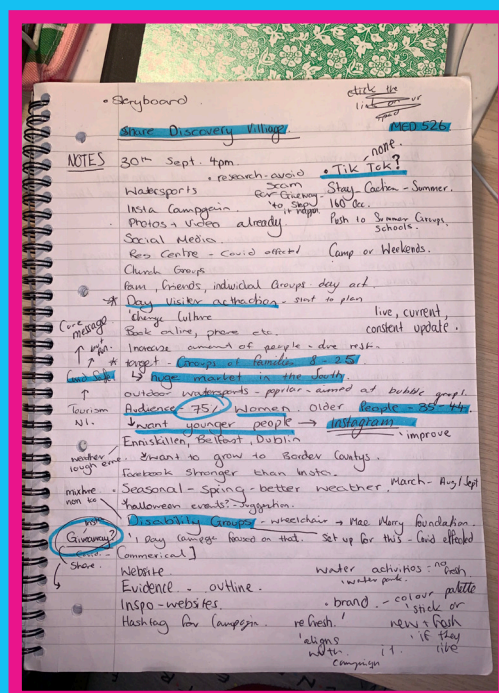 • Storyboard
stick the
Share Discovery Village.
MED 526
NOTES 30th Sept. 4pm.
none.
• Tik Tok?
• research - avoid
scam
for Giveaway
Watersports
Stay - Summer.
Insta Campgain
'to stop it happen
160 Occ.
Photos + Video already
Push to Summer Groups,
schools.
Social Media.
Res Centre - Covid effected
Camp or Weekends.
Church Groups
Fam, Friends, individual Groups - day act.
Day Visiter acthaction - start to plan
'change Culture
live, current,
constent update.
Core message
Book online, phone etc.
Increase amount of people - due rest.
* target - Groups of families 8 - 25
Covid Safe
↳ huge market in the South.
outdoor watersports - popular - aimed at bubble groups.
Tourism NI.
Audience 75% Women. Older People - 35 - 44
↓ want younger people → Instagram
improve
Enniskillen, Belfast, Dublin
weather
lough erne.
want to grow to Border Countys.
facebook stronger than Insta.
• Seasonal - Spring - better weather.
March - Aug/Sept
'halloween events' - suggestion.
Disablity Groups - wheelchair → Mae Murry foundation.
Giveaway?
'1 Day camege focused on that.
Set up for this - Covid effected
Share.
Covid - Commerical]
Website
water activities: no fresh
'water park.
Evidence. outline.
Inspo - websites.
• brand. - colour palette
'stick or
Hashtag for Campagin.
refresh!
new + fresh
'aligns with campaign
'if they like it.